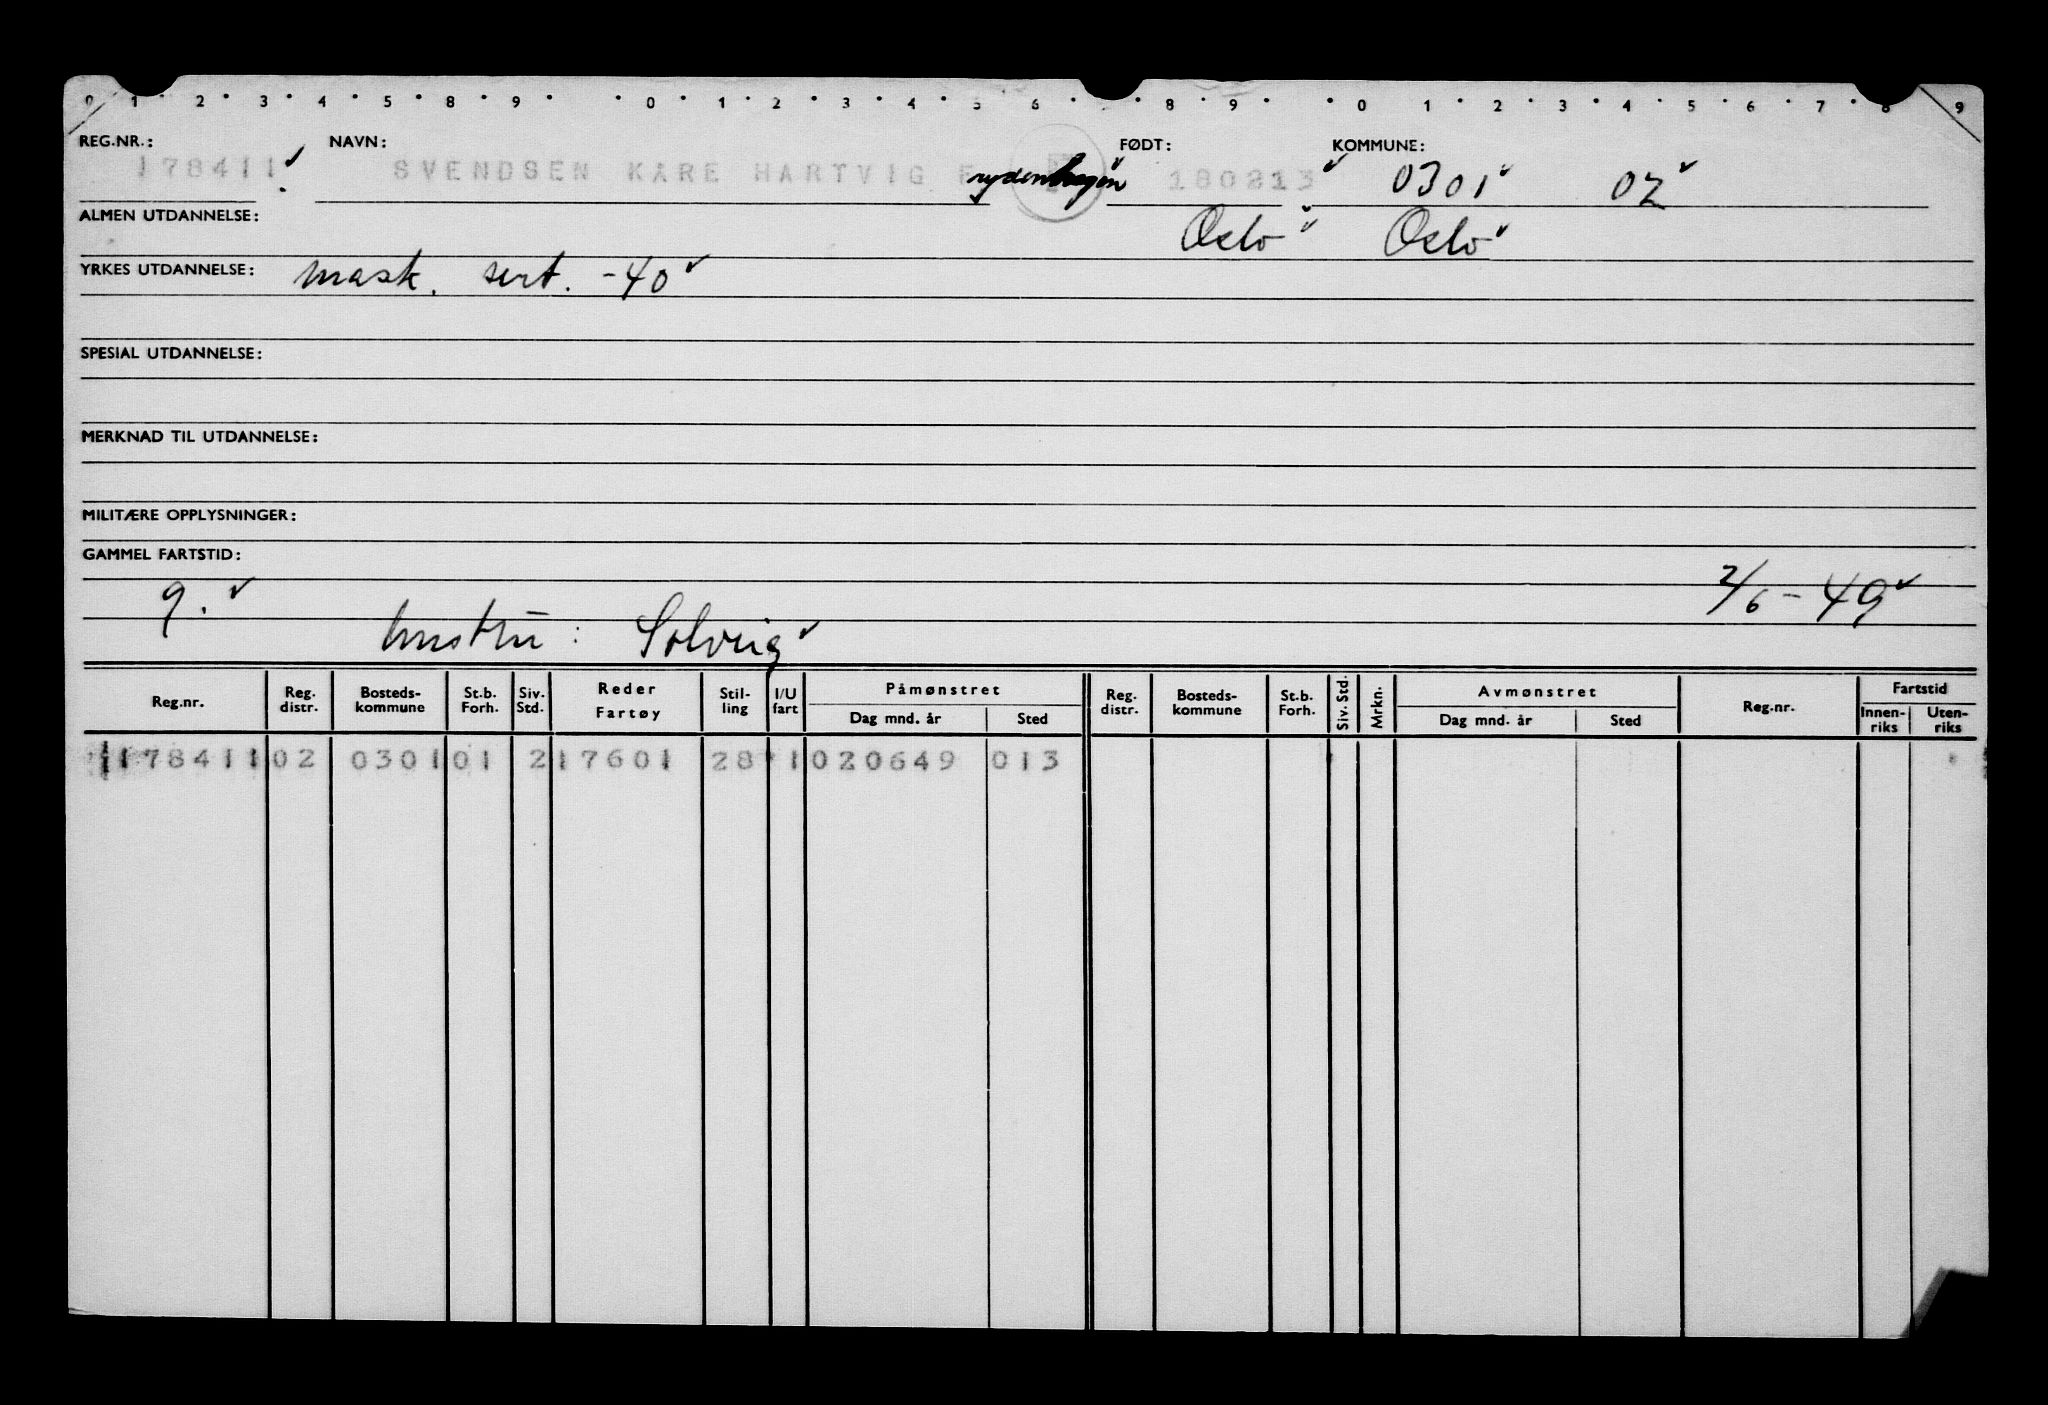 0 1 2 3 4 5 8 9 0 1 2 3 4 5 6 8 9 0 1 2 3 4 5 6 7 8 9
REG.NR.: NAVN: FØDT: KOMMUNE:
178411 SVENDSEN KARE HARTVIG F rydenhagen 180213 0301 02
ALMEN UTDANNELSE: Oslo Oslo
YRKES UTDANNELSE: mask. sert. -40
SPESIAL UTDANNELSE:
MERKNAD TIL UTDANNELSE:
MILITÆRE OPPLYSNINGER:
GAMMEL FARTSTID:
9. 2/6-49
hustru: Solveig
Reg.nr. Reg. distr. Bosteds-kommune St.b. Forh. Siv. Std. Reder Fartøy Stil-ling I/U fart Påmønstret Dag mnd. år Sted Reg. distr. Bosteds-kommune St.b. Forh. Siv. Std. Mrkn. Avmønstret Dag mnd. år Sted Reg.nr. Fartstid Innen-riks Uten-riks
178411 02 0301 01 2 17601 28 1 020649 013